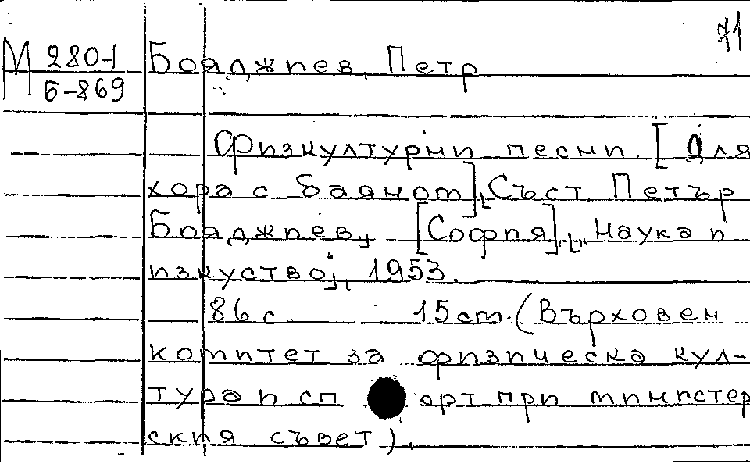 71
М 280-1
Б-869
Бояджиев, Петр
Физкултурни песни. [Для
хора с баяном]. Съст. Петър
Бояджиев. [София], "Наука и
изкуство", 1953.
86 с. 15 cm. (Върховен
комитет за физическа кул-
тура и спорт при министер
ския съвет).